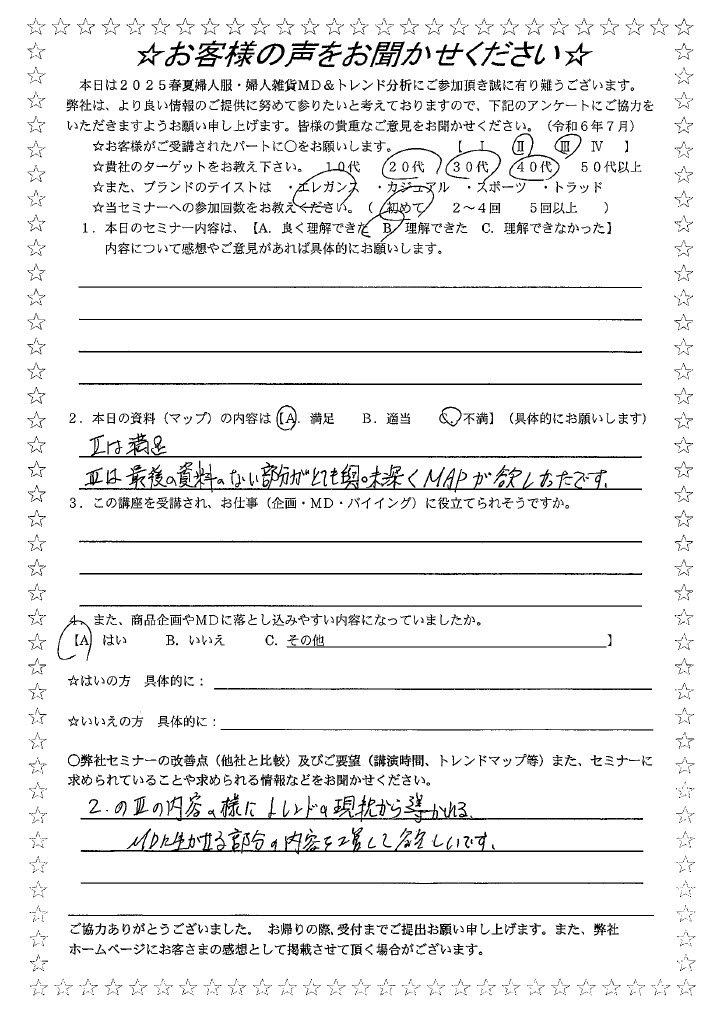 ☆お客様の声をお聞かせください☆
本日は2025春夏婦人服・婦人雑貨MD&トレンド分析にご参加頂き誠に有り難うございます。
弊社は、より良い情報のご提供に努めて参りたいと考えておりますので、下記のアンケートにご協力を
いただきますようお願い申し上げます。皆様の貴重なご意見をお聞かせください。（令和6年7月）
☆お客様がご受講されたパートに○をお願いします。 【 Ⅰ Ⅱ Ⅲ Ⅳ 】
☆貴社のターゲットをお教え下さい。 10代 20代 30代 40代 50代以上
☆また、ブランドのテイストは ・エレガンス ・カジュアル ・スポーツ ・トラッド
☆当セミナーへの参加回数をお教えください。（ 初めて 2～4回 5回以上 ）
1．本日のセミナー内容は、【A．良く理解できた B．理解できた C．理解できなかった】
内容について感想やご意見があれば具体的にお願いします。
2．本日の資料（マップ）の内容は【A．満足 B．適当 C．不満】（具体的にお願いします）
Ⅱは満足
Ⅲは最後の資料のない部分がとても興味深くMAPが欲しかったです。
3．この講座を受講され、お仕事（企画・MD・バイイング）に役立てられそうですか。
4．また、商品企画やMDに落とし込みやすい内容になっていましたか。
【A はい B．いいえ C．その他 】
☆はいの方 具体的に：
☆いいえの方 具体的に：
○弊社セミナーの改善点（他社と比較）及びご要望（講演時間、トレンドマップ等）また、セミナーに
求められていることや求められる情報などをお聞かせください。
2．のⅢの内容の様にトレンドの現状から導かれる
MDに生かせる部分の内容を増して欲しいです。
ご協力ありがとうございました。 お帰りの際、受付までご提出お願い申し上げます。また、弊社
ホームページにお客さまの感想として掲載させて頂く場合がございます。